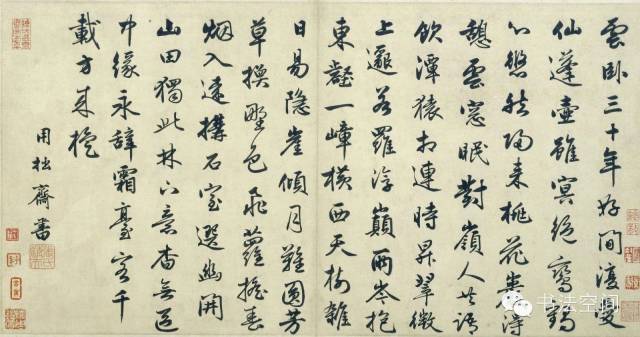 雲卧三十年好閒復愛
仙蓬壺雖冥絕鸞鶴
心悠然歸來桃花巖得
憩雲窓眠對嶺人共語
飲潭猿相連時昇翠微
上邈若羅浮巔兩岑抱
東壑一嶂橫西天樹雜
日易隱崖傾月難圓芳
草換野色飛蘿搖春
烟入遠構石室選幽開
山田獨此林下意杳無區
中緣永辭霜臺客千
載方來旋
用拙齋書
书法空间